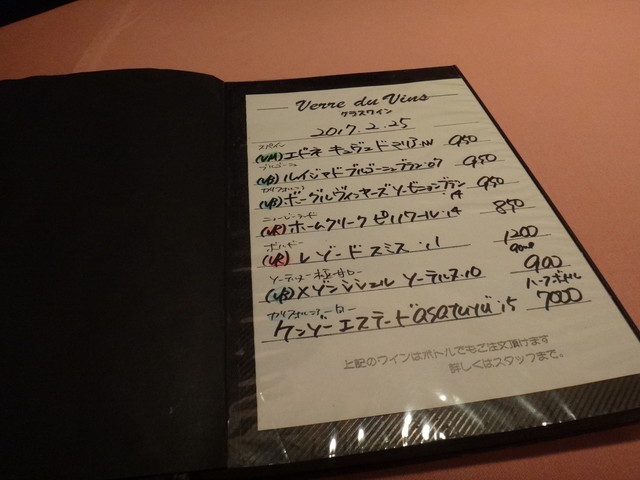 Verre du Vins
グラスワイン
2017.2.25
スペイン
(VM) エドネ キュヴェ ド 950
ブルゴーニュ
(VB) ルイジャド ブルゴーニュ ブラン '07 950
カリフォルニア
(VB) ボーグル ヴィンヤーズ ソービニョンブラン '14 950
ニュージーランド
(VR) ホームクリーク ピノノワール '14 850
ボルドー
(VR) レゾード スミス '11 1200
ソーテルヌ 極甘口 90ml
(VB) メゾン シシェル ソーテルヌ '10 900
カリフォルニア ハーフボトル
ケンゾーエステート asatsuyu '15 7000
上記のワインはボトルでもご注文頂けます
詳しくはスタッフまで。